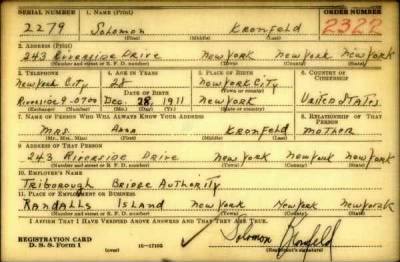 SERIAL NUMBER 1. NAME (Print) ORDER NUMBER
2279 Solomon Kronfeld 2322
(First) (Middle) (Last)
2. ADDRESS (Print)
243 Riverside Drive New York New York New York
(Number and street or R. F. D. number) (Town) (County) (State)
3. TELEPHONE 4. AGE IN YEARS 5. PLACE OF BIRTH 6. COUNTRY OF CITIZENSHIP
New York City 28 New York City
DATE OF BIRTH
Riverside 9-0700 Dec. 28, 1911 New York United States
(Exchange) (Number) (Mo.) (Day) (Yr.) (State or country)
7. NAME OF PERSON WHO WILL ALWAYS KNOW YOUR ADDRESS 8. RELATIONSHIP OF THAT PERSON
Mrs. Anna Kronfeld Mother
(Mr., Mrs., Miss) (First) (Middle) (Last)
9. ADDRESS OF THAT PERSON
243 Riverside Drive New York New York New York
(Number and street or R. F. D. number) (Town) (County) (State)
10. EMPLOYER'S NAME
Triborough Bridge Authority
11. PLACE OF EMPLOYMENT OR BUSINESS
Randalls Island New York New York New York
(Number and street or R. F. D. number) (Town) (County) (State)
I AFFIRM THAT I HAVE VERIFIED ABOVE ANSWERS AND THAT THEY ARE TRUE.
REGISTRATION CARD
D. S. S. FORM 1 (over) 16-17105 Solomon Kronfeld